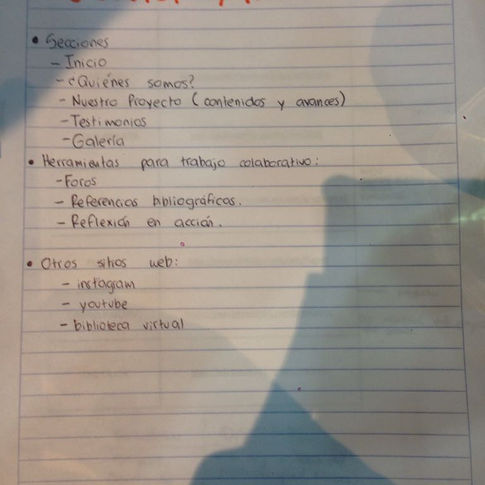 • Secciones
- Inicio
- ¿Quiénes somos?
- Nuestro Proyecto (contenidos y avances)
- Testimonios
- Galería
• Herramientas para trabajo colaborativo:
- Foros
- Referencias bibliográficas.
- Reflexión en acción.
• Otros sitios web:
- instagram
- youtube
- biblioteca virtual